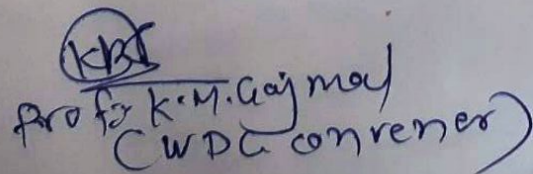 KBS
Prof. K.M. Gajmal
(WDC convener)